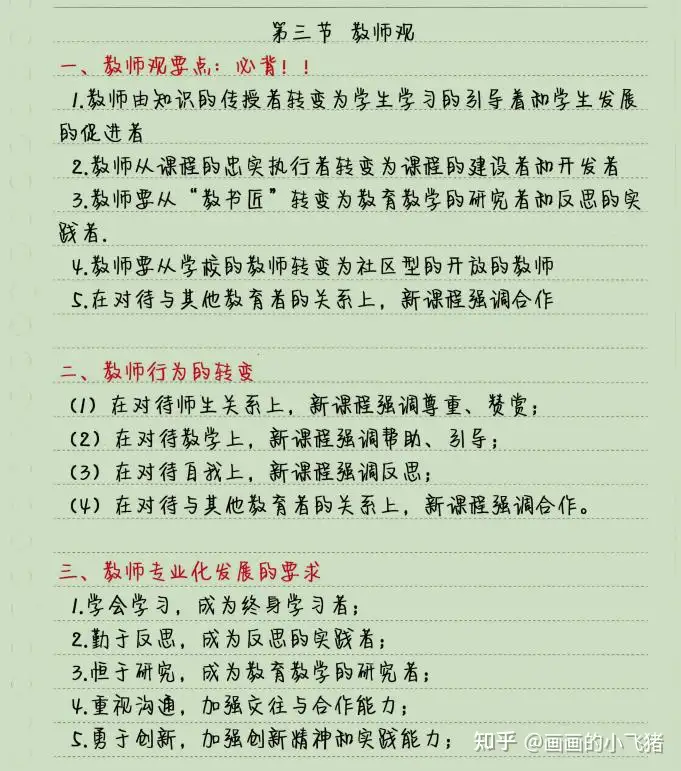 第三节 教师观
一、教师观要点：必背！！
1.教师由知识的传授者转变为学生学习的引导者和学生发展
的促进者
2.教师从课程的忠实执行者转变为课程的建设者和开发者
3.教师要从“教书匠”转变为教育教学的研究者和反思的实
践者.
4.教师要从学校的教师转变为社区型的开放的教师
5.在对待与其他教育者的关系上，新课程强调合作
二、教师行为的转变
（1）在对待师生关系上，新课程强调尊重、赞赏；
（2）在对待教学上，新课程强调帮助、引导；
（3）在对待自我上，新课程强调反思；
（4）在对待与其他教育者的关系上，新课程强调合作。
三、教师专业化发展的要求
1.学会学习，成为终身学习者；
2.勤于反思，成为反思的实践者；
3.恒于研究，成为教育教学的研究者；
4.重视沟通，加强交往与合作能力；
5.勇于创新，加强创新精神和实践能力；
知乎 @画画的小飞猪